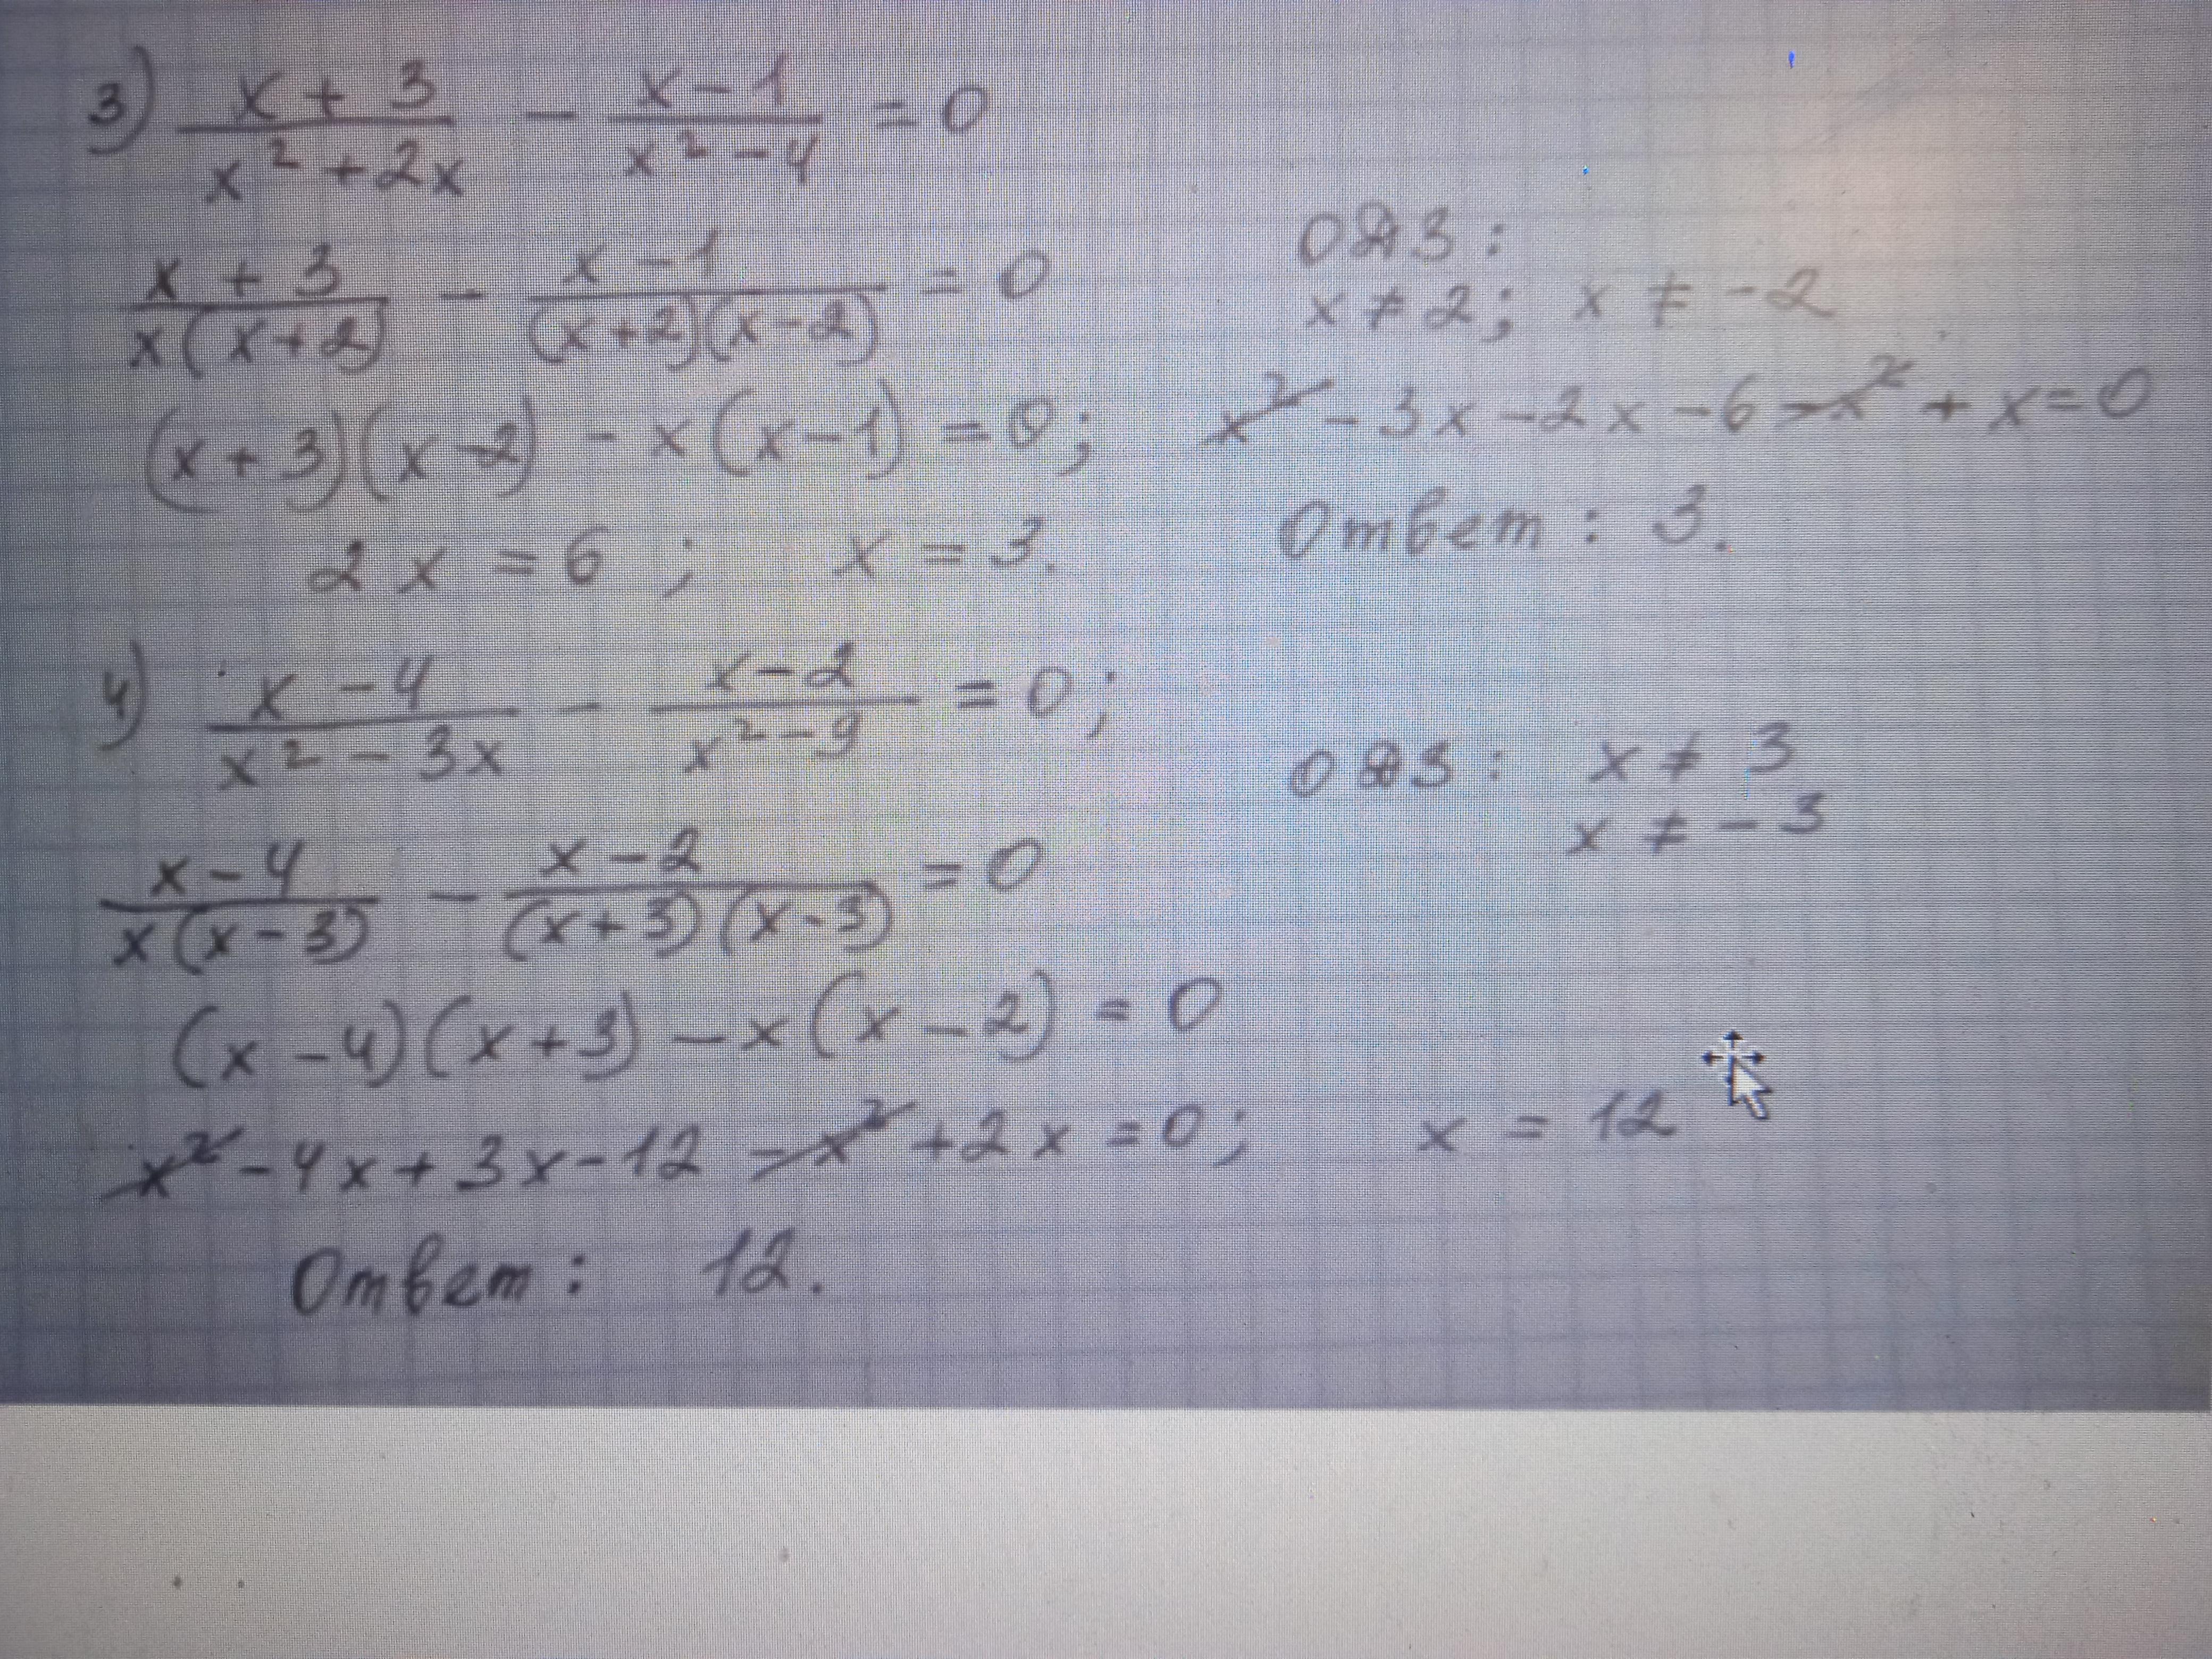 3) (x + 3)/(x² + 2x) - (x - 1)/(x² - 4) = 0
(x + 3)/(x(x + 2)) - (x - 1)/((x + 2)(x - 2)) = 0
ОДЗ :
x ≠ 2; x ≠ -2
(x + 3)(x - 2) - x(x - 1) = 0; x² - 3x - 2x - 6 - x² + x = 0
2x = 6 ; x = 3.
Ответ : 3.
4) (x - 4)/(x² - 3x) - (x - 2)/(x² - 9) = 0;
ОДЗ : x ≠ 3
x ≠ - 3
(x - 4)/(x(x - 3)) - (x - 2)/((x + 3)(x - 3)) = 0
(x - 4)(x + 3) - x(x - 2) = 0
x² - 4x + 3x - 12 - x² + 2x = 0; x = 12
Ответ : 12.